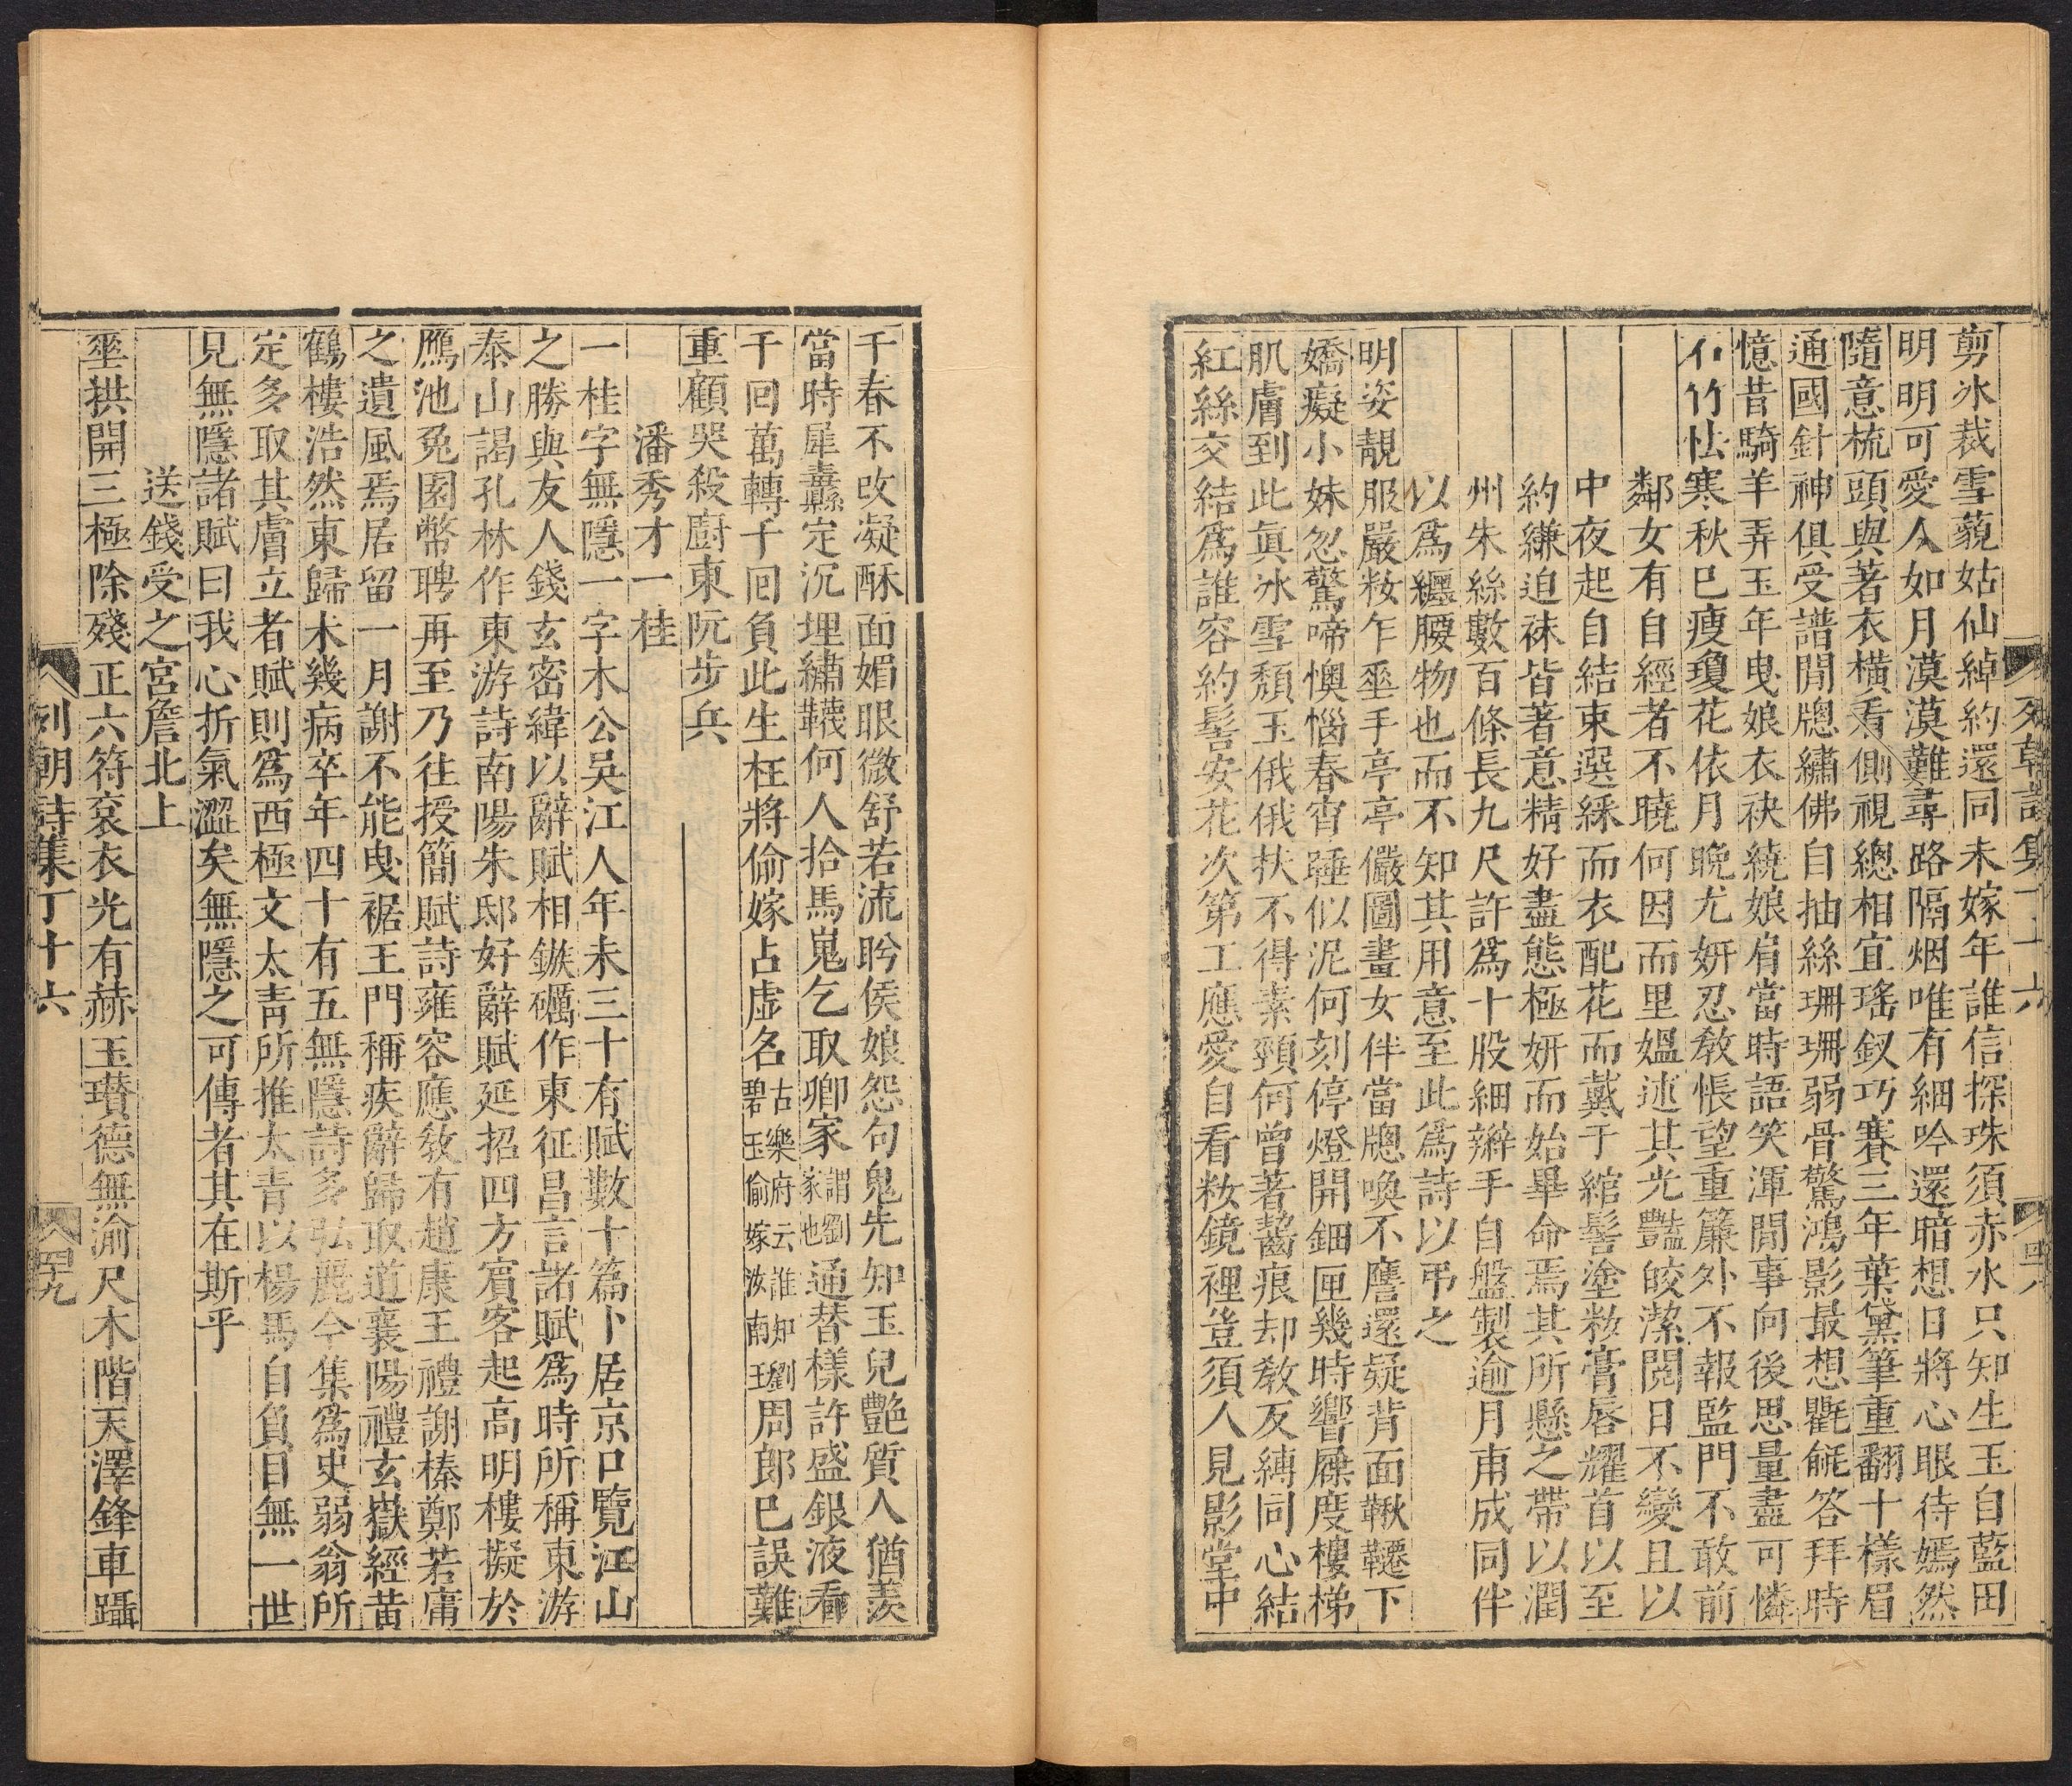 剪冰裁雪藐姑仙綽約還同未嫁年誰信探珠須赤水只知生玉自藍田
明明可愛人如月漠漠難尋路隔烟唯有細吟還暗想日將心眼待嫣然
隨意梳頭與著衣橫看側視總相宜瑤釵巧賽三年葉黛筆重翻十樣眉
通國針神俱受譜閒牕繡佛自抽絲珊珊弱骨驚鴻影最想氍毹答拜時
憶昔騎羊弄玉年曳娘衣袂繞娘肩當時語笑渾閒事向後思量盡可憐
石竹怯寒秋巳瘦瓊花依月晚尤妍忍教悵望重簾外不報監門不敢前
鄰女有自經者不曉何因而里媼述其光豔皎潔閱日不變且以
中夜起自結束選綵而衣配花而戴于綰髻塗粧膏唇耀首以至
約縑迫袜皆著意精好盡態極妍而始畢命焉其所懸之帶以潤
州朱絲數百條長九尺許爲十股細辮手自盤製逾月甫成同伴
以爲纏腰物也而不知其用意至此爲詩以弔之
明姿靚服嚴粧乍埀手亭亭儼圖畫女伴當牕喚不譍還疑背面鞦韆下
嬌癡小妹忽驚啼懊惱春宵睡似泥何刻停燈開鈿匣幾時響屧度樓梯
肌膚到此眞冰雪頽玉俄俄扶不得素頸何曾著齧痕却教反縛同心結
紅絲交結爲誰容約髻安花次第工應愛自看粧鏡裡豈須人見影堂中
列朝詩集丁十六
四八
千春不改凝酥面媚眼微舒若流盻侯娘怨句鬼先知玉兒艶質人猶羨
當時犀纛定沉埋繡韈何人拾馬嵬乞取卿家謂劉家也通替樣許盛銀液看
千回萬轉千回負此生枉將偷嫁占虛名古樂府云誰知劉碧玉偷嫁汝南王周郎巳誤難
重顧哭殺廚東阮步兵
潘秀才一桂
一桂字無隱一字木公吳江人年未三十有賦數十篇卜居京口覽江山
之勝與友人錢玄密緯以辭賦相鏃礪作東征昌言諸賦爲時所稱東游
泰山謁孔林作東游詩南陽朱邸好辭賦延招四方賓客起高明樓擬於
鴈池兔園幣聘再至乃往授簡賦詩雍容應教有趙康王禮謝榛鄭若庸
之遺風焉居留一月謝不能曳裾王門稱疾辭歸取道襄陽禮玄嶽經黃
鶴樓浩然東歸未幾病卒年四十有五無隱詩多弘麗今集爲史弱翁所
定多取其膚立者賦則爲西極文太青所推太青以楊馬自負目無一世
見無隱諸賦曰我心折氣澀矣無隱之可傳者其在斯乎
送錢受之宮詹北上
埀拱開三極除殘正六符袞衣光有赫玉瓚德無渝尺木階天澤鋒車躡
列朝詩集丁十六
四九